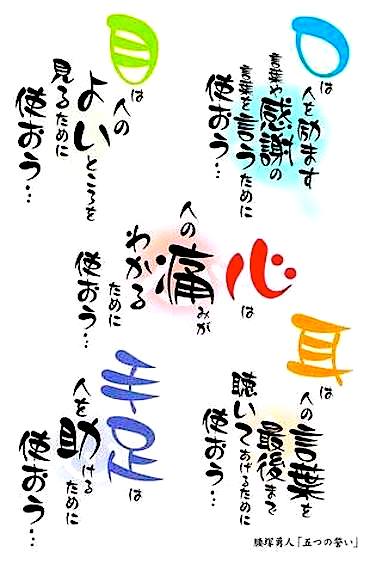 口は
人を励ます
言葉や感謝の
言葉を言うために
使おう…
目は
人の
よいところを
見るために
使おう…
心は
人の
痛みが
わかる
ために
使おう…
耳は
人の言葉を
最後まで
聴いてあげるために
使おう…
手足は
人を助けるために
使おう…
腰塚勇人「五つの誓い」